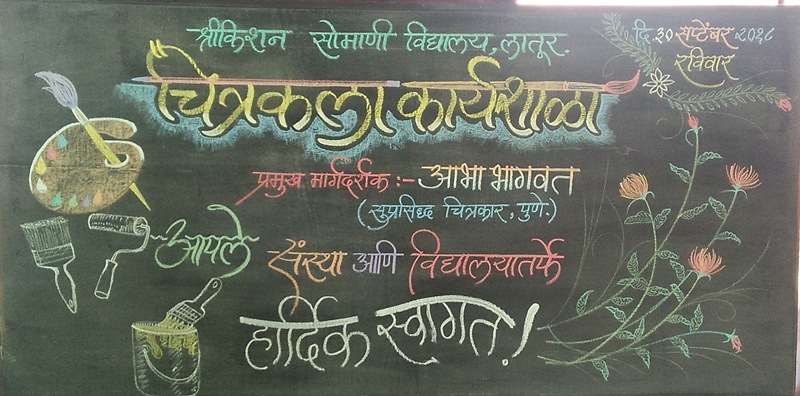 श्रीकिशन सोमाणी विद्यालय, लातूर.
दि. ३० सप्टेंबर २०१८
रविवार
चित्रकला कार्यशाळा
प्रमुख मार्गदर्शक :- आभा भागवत
(सुप्रसिद्ध चित्रकार, पुणे.)
आपले संस्था आणि विद्यालयातर्फे
हार्दिक स्वागत!